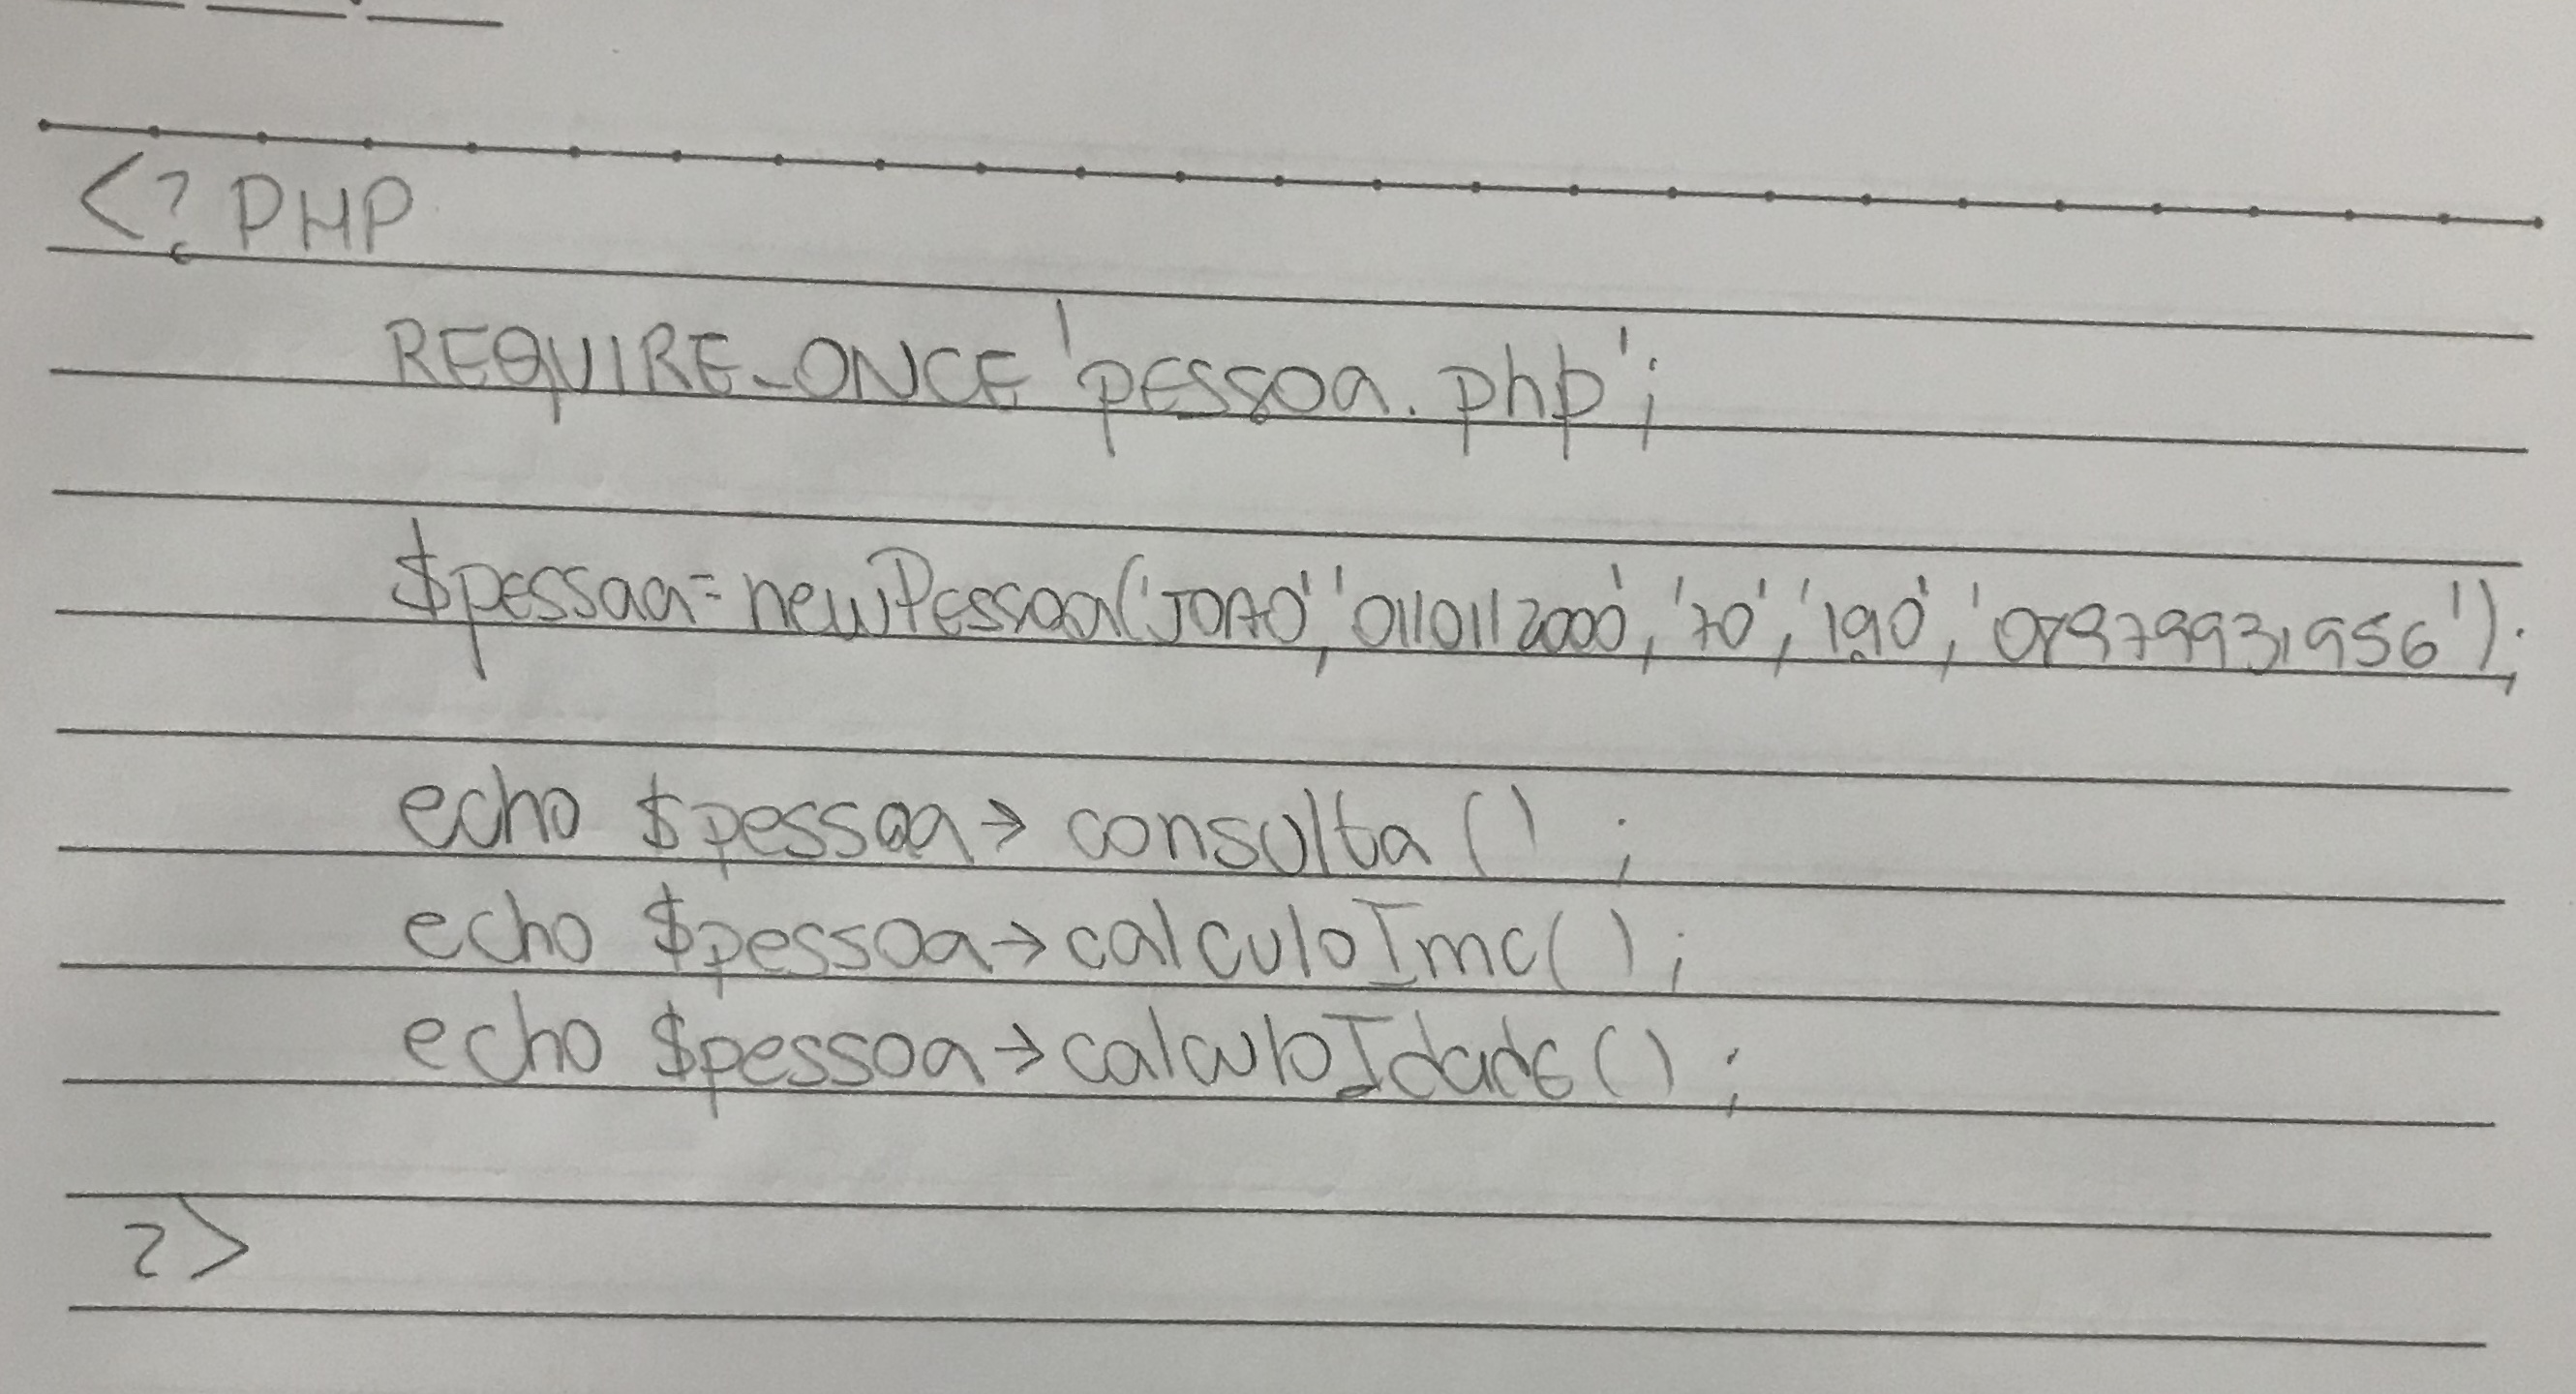 <? PHP
REQUIRE_ONCE 'pessoa.php';
$pessoa = new Pessoa('JOAO', '01/01/2000', '70', '1.90', '08979931956');
echo $pessoa -> consulta () ;
echo $pessoa -> calculoImc( );
echo $pessoa -> calculoIdade( ) ;
?>